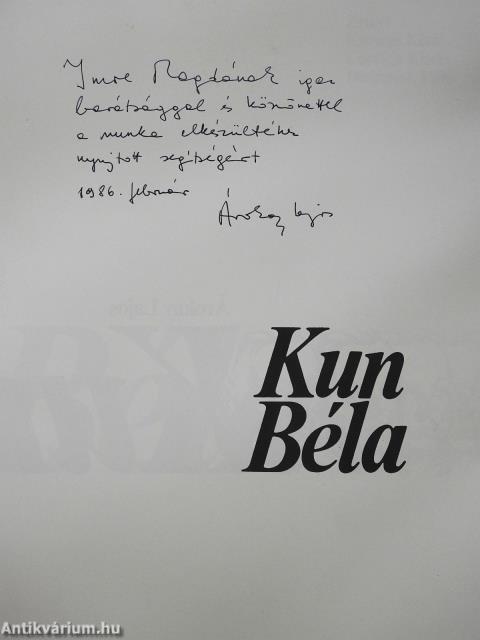 Imre Magdának igaz
barátsággal és köszönettel
a munka elkészültéhez
nyujtott segítségért
1986. február
Árokay Lajos
Kun
Béla
Antikvárium.hu